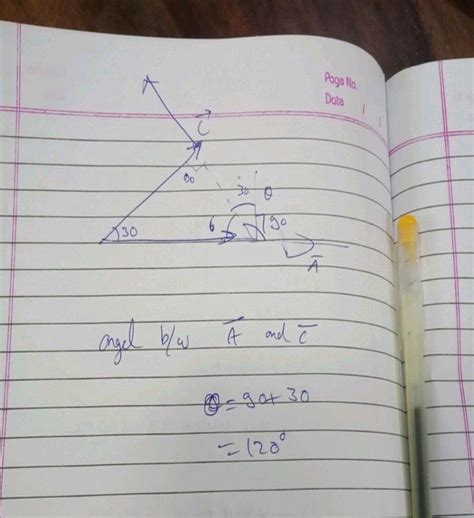 Page No.
Date
C
90
30 θ
30
90
A
angel b/w A and C
θ = 90 + 30
= 120°